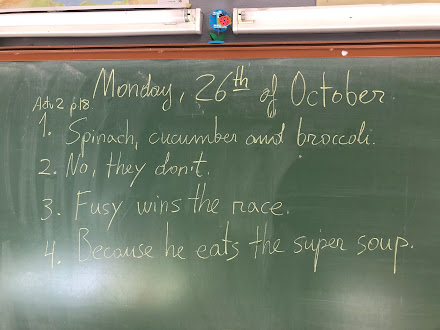 Monday, 26th of October.
Adv 2 p18.
1. Spinach, cucumber and broccoli.
2. No, they don't.
3. Fusy wins the race.
4. Because he eats the super soup.